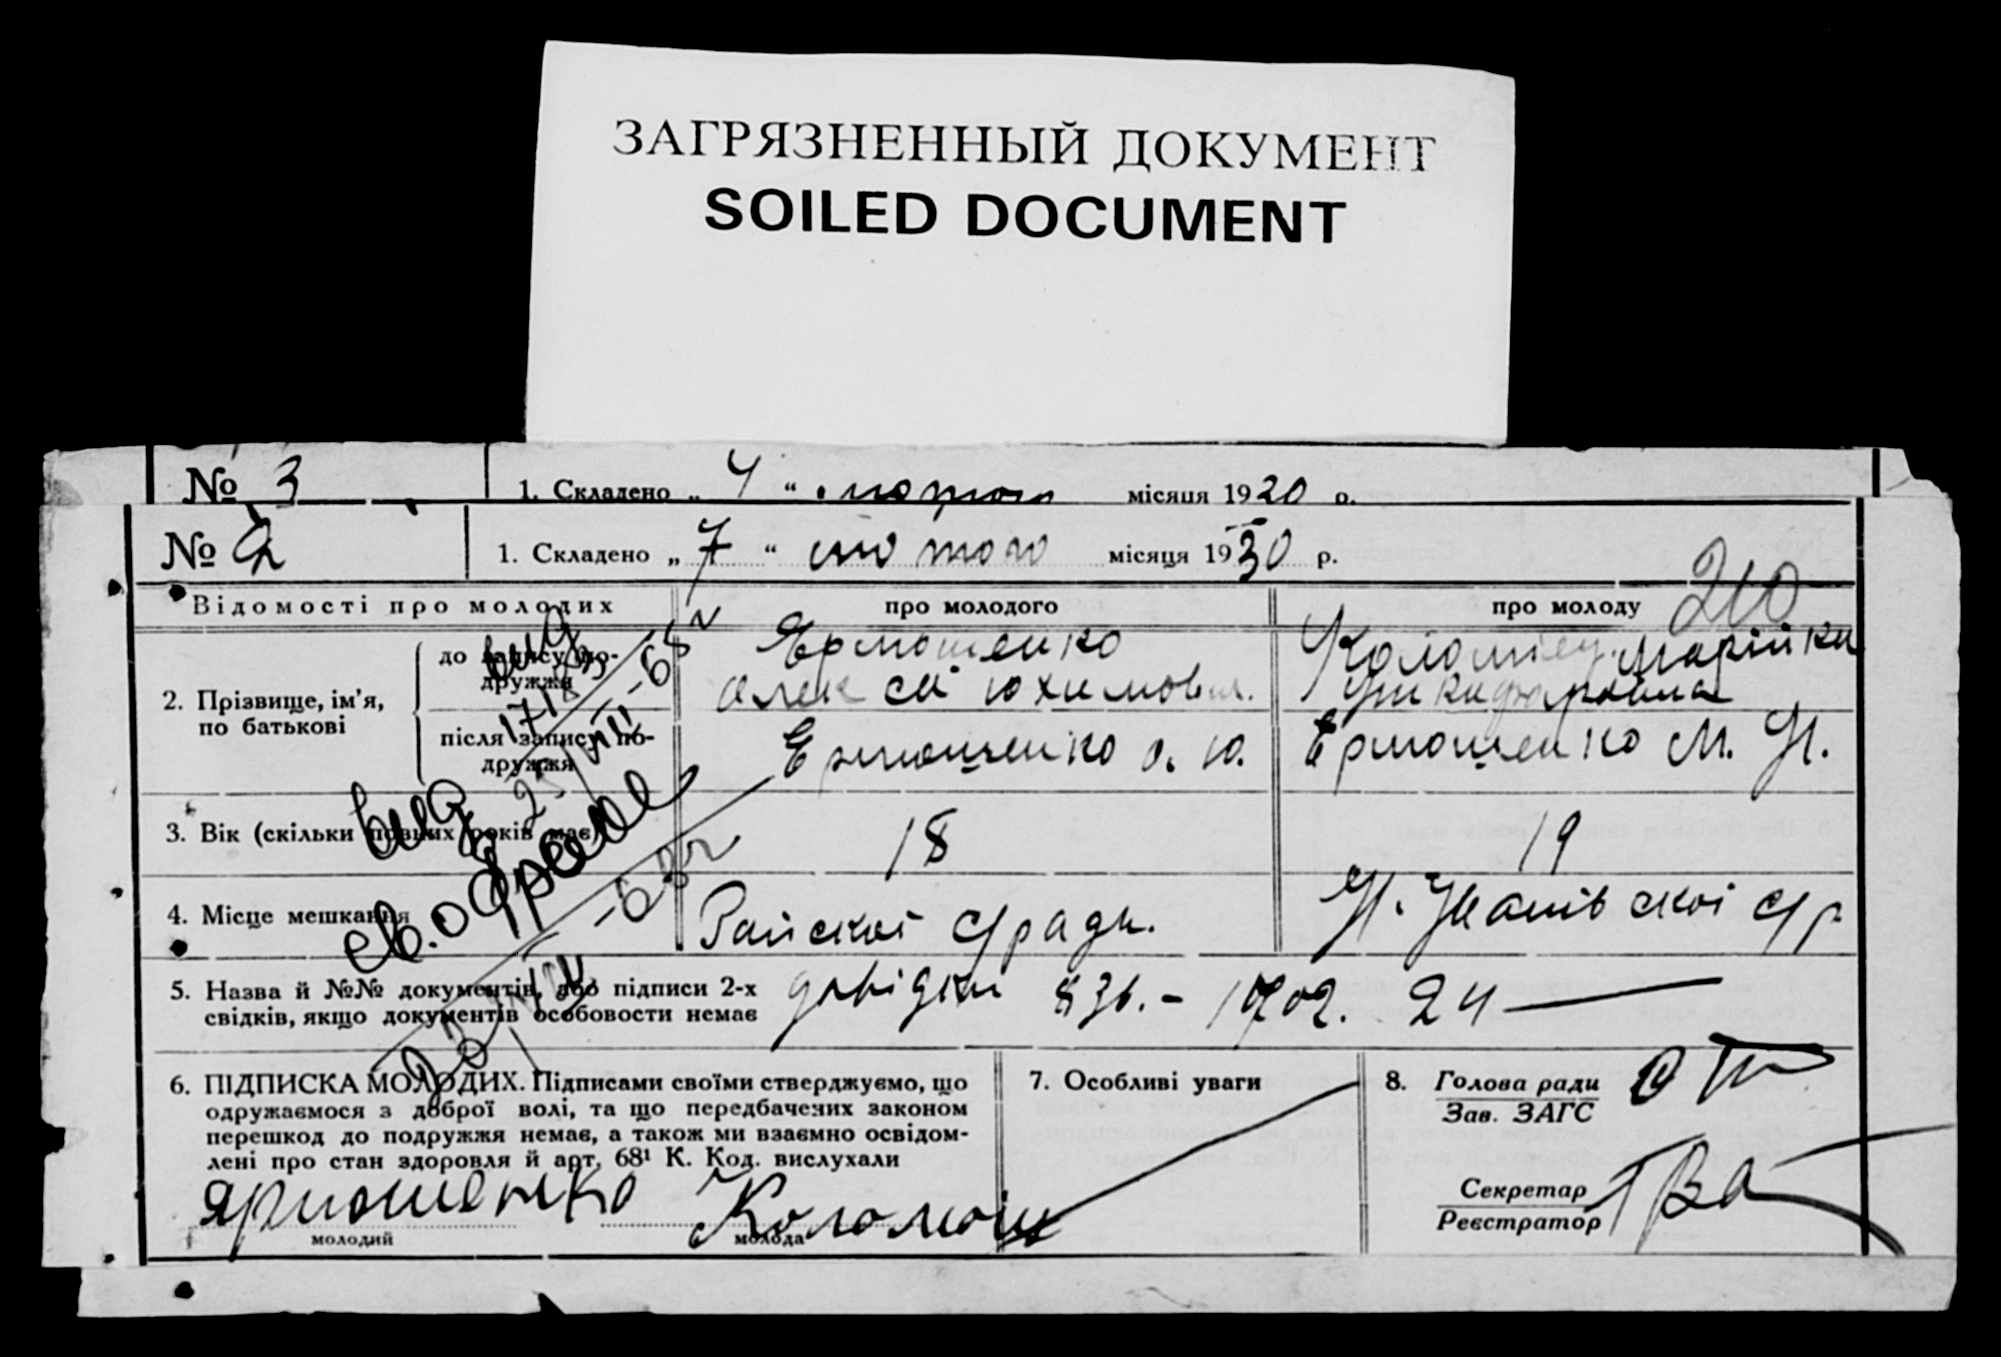 ЗАГРЯЗНЕННЫЙ ДОКУМЕНТ
SOILED DOCUMENT
№ 3 1. Складено „ 4 “ лютого місяця 1920 р.
№ 2 1. Складено „ 7 “ лютого місяця 1930 р.
210
Відомості про молодих про молодого про молоду
2. Прізвище, ім'я, по батькові
до запису подружжя
Ярмошенко Олексій Юхимович. Коломієц Марійка
після запису подружжя
Ермошенко О. Ю. Ермошенко М. Н.
3. Вік (скільки повних років має) 18 19
4. Місце мешкання Райскої с/ради. Н. Іванівскої с/р
5. Назва й №№ документів, або підписи 2-х
свідків, якщо документів особовости немає
довідки 24
6. ПІДПИСКА МОЛОДИХ. Підписами своїми стверджуємо, що
одружаємося з доброї волі, та що передбачених законом
перешкод до подружжя немає, а також ми взаємно освідом-
лені про стан здоровля й арт. 68¹ К. Код. вислухали
Ярмошенко
молодий
молода
7. Особливі уваги
8. Голова ради
Зав. ЗАГС
Секретар
Реєстратор